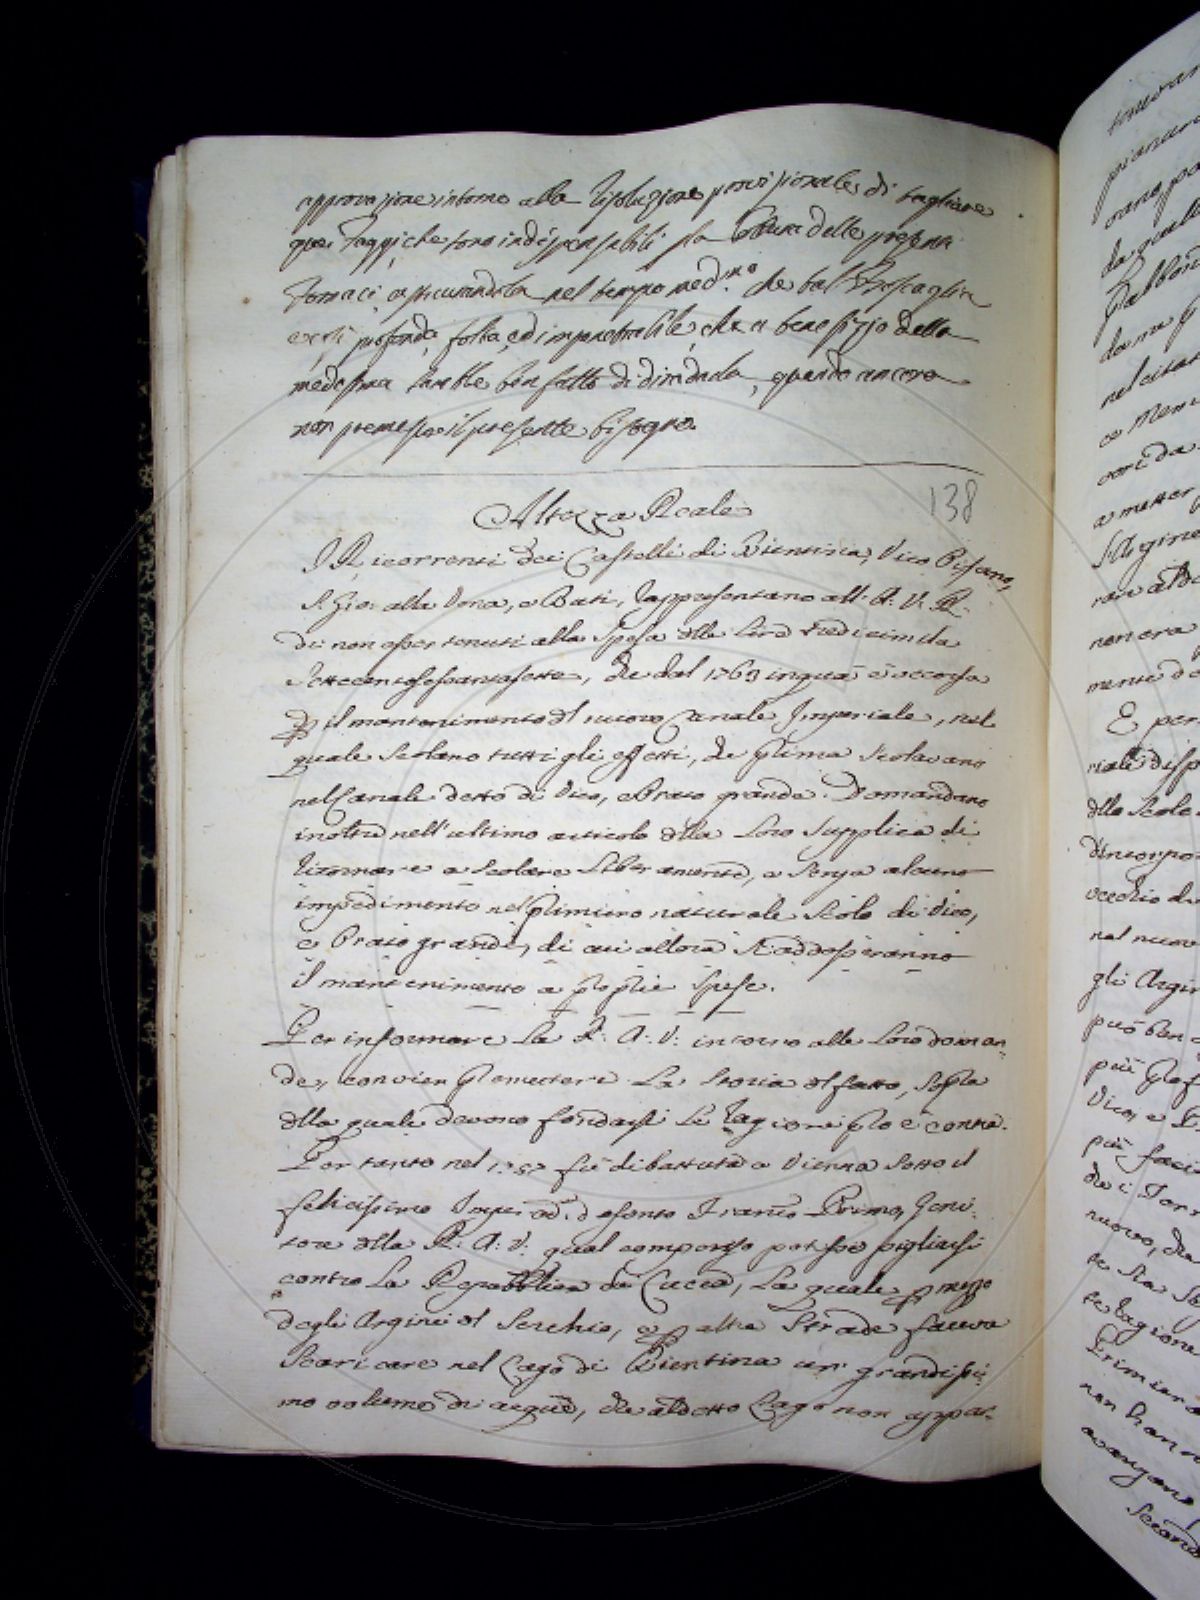 approvazione intorno alla risoluzione provisionale di tagliare
quei Faggi, che sono indispensabili per la cottura delle presenti
Fornaci, assicurandola nel tempo med.mo che tal Boscaglia
è così profonda, folta, ed impenetrabile, che a benefizio della
medesima sarebbe ben fatto di diradarla, quando ancora
non premesse il presente bisogno.
138
Altezza Reale
I Ricorrenti dei Castelli di Bientina, Vico Pisano,
S. Gio: alla Vena, e Buti, rappresentano all: A: V: R:
di non esser tenuti alla Spesa dlle Lire tredicimila
settecentosessantasette, che dal 1763 in qua è occorsa
p il mantenimento dl nuovo Canale Imperiale, nel
quale scolano tutti gli effetti, che prima scolavano
nel Canale detto di Vico, e Prato grande. Domandano
inoltre nell'ultimo articolo dlla loro supplica di
ritornare a scolare liberamente, e senza alcuno
impedimento nel primiero naturale scolo di Vico,
e Prato grande, di cui allora s'addosseranno
il mantenimento a proprie spese.
Per informare la R: A: V: intorno alle loro doman-
de, convien premettere la storia dl fatto, sopra
dlla quale devono fondarsi le ragioni pro e contra.
Per tanto nel 1757 fù dibattuto a Vienna sotto il
felicissimo Imperad: defonto Franc.o Primo, Geni-
tore dlla R: A: V: qual compenso potesse pigliarsi
contro la Repubblica di Lucca, la quale p mezzo
degli Argini dl Serchio, e p altre strade faceva
scaricare nel Lago di Bientina un grandissi-
mo volume di acque, che al detto Lago non appar-